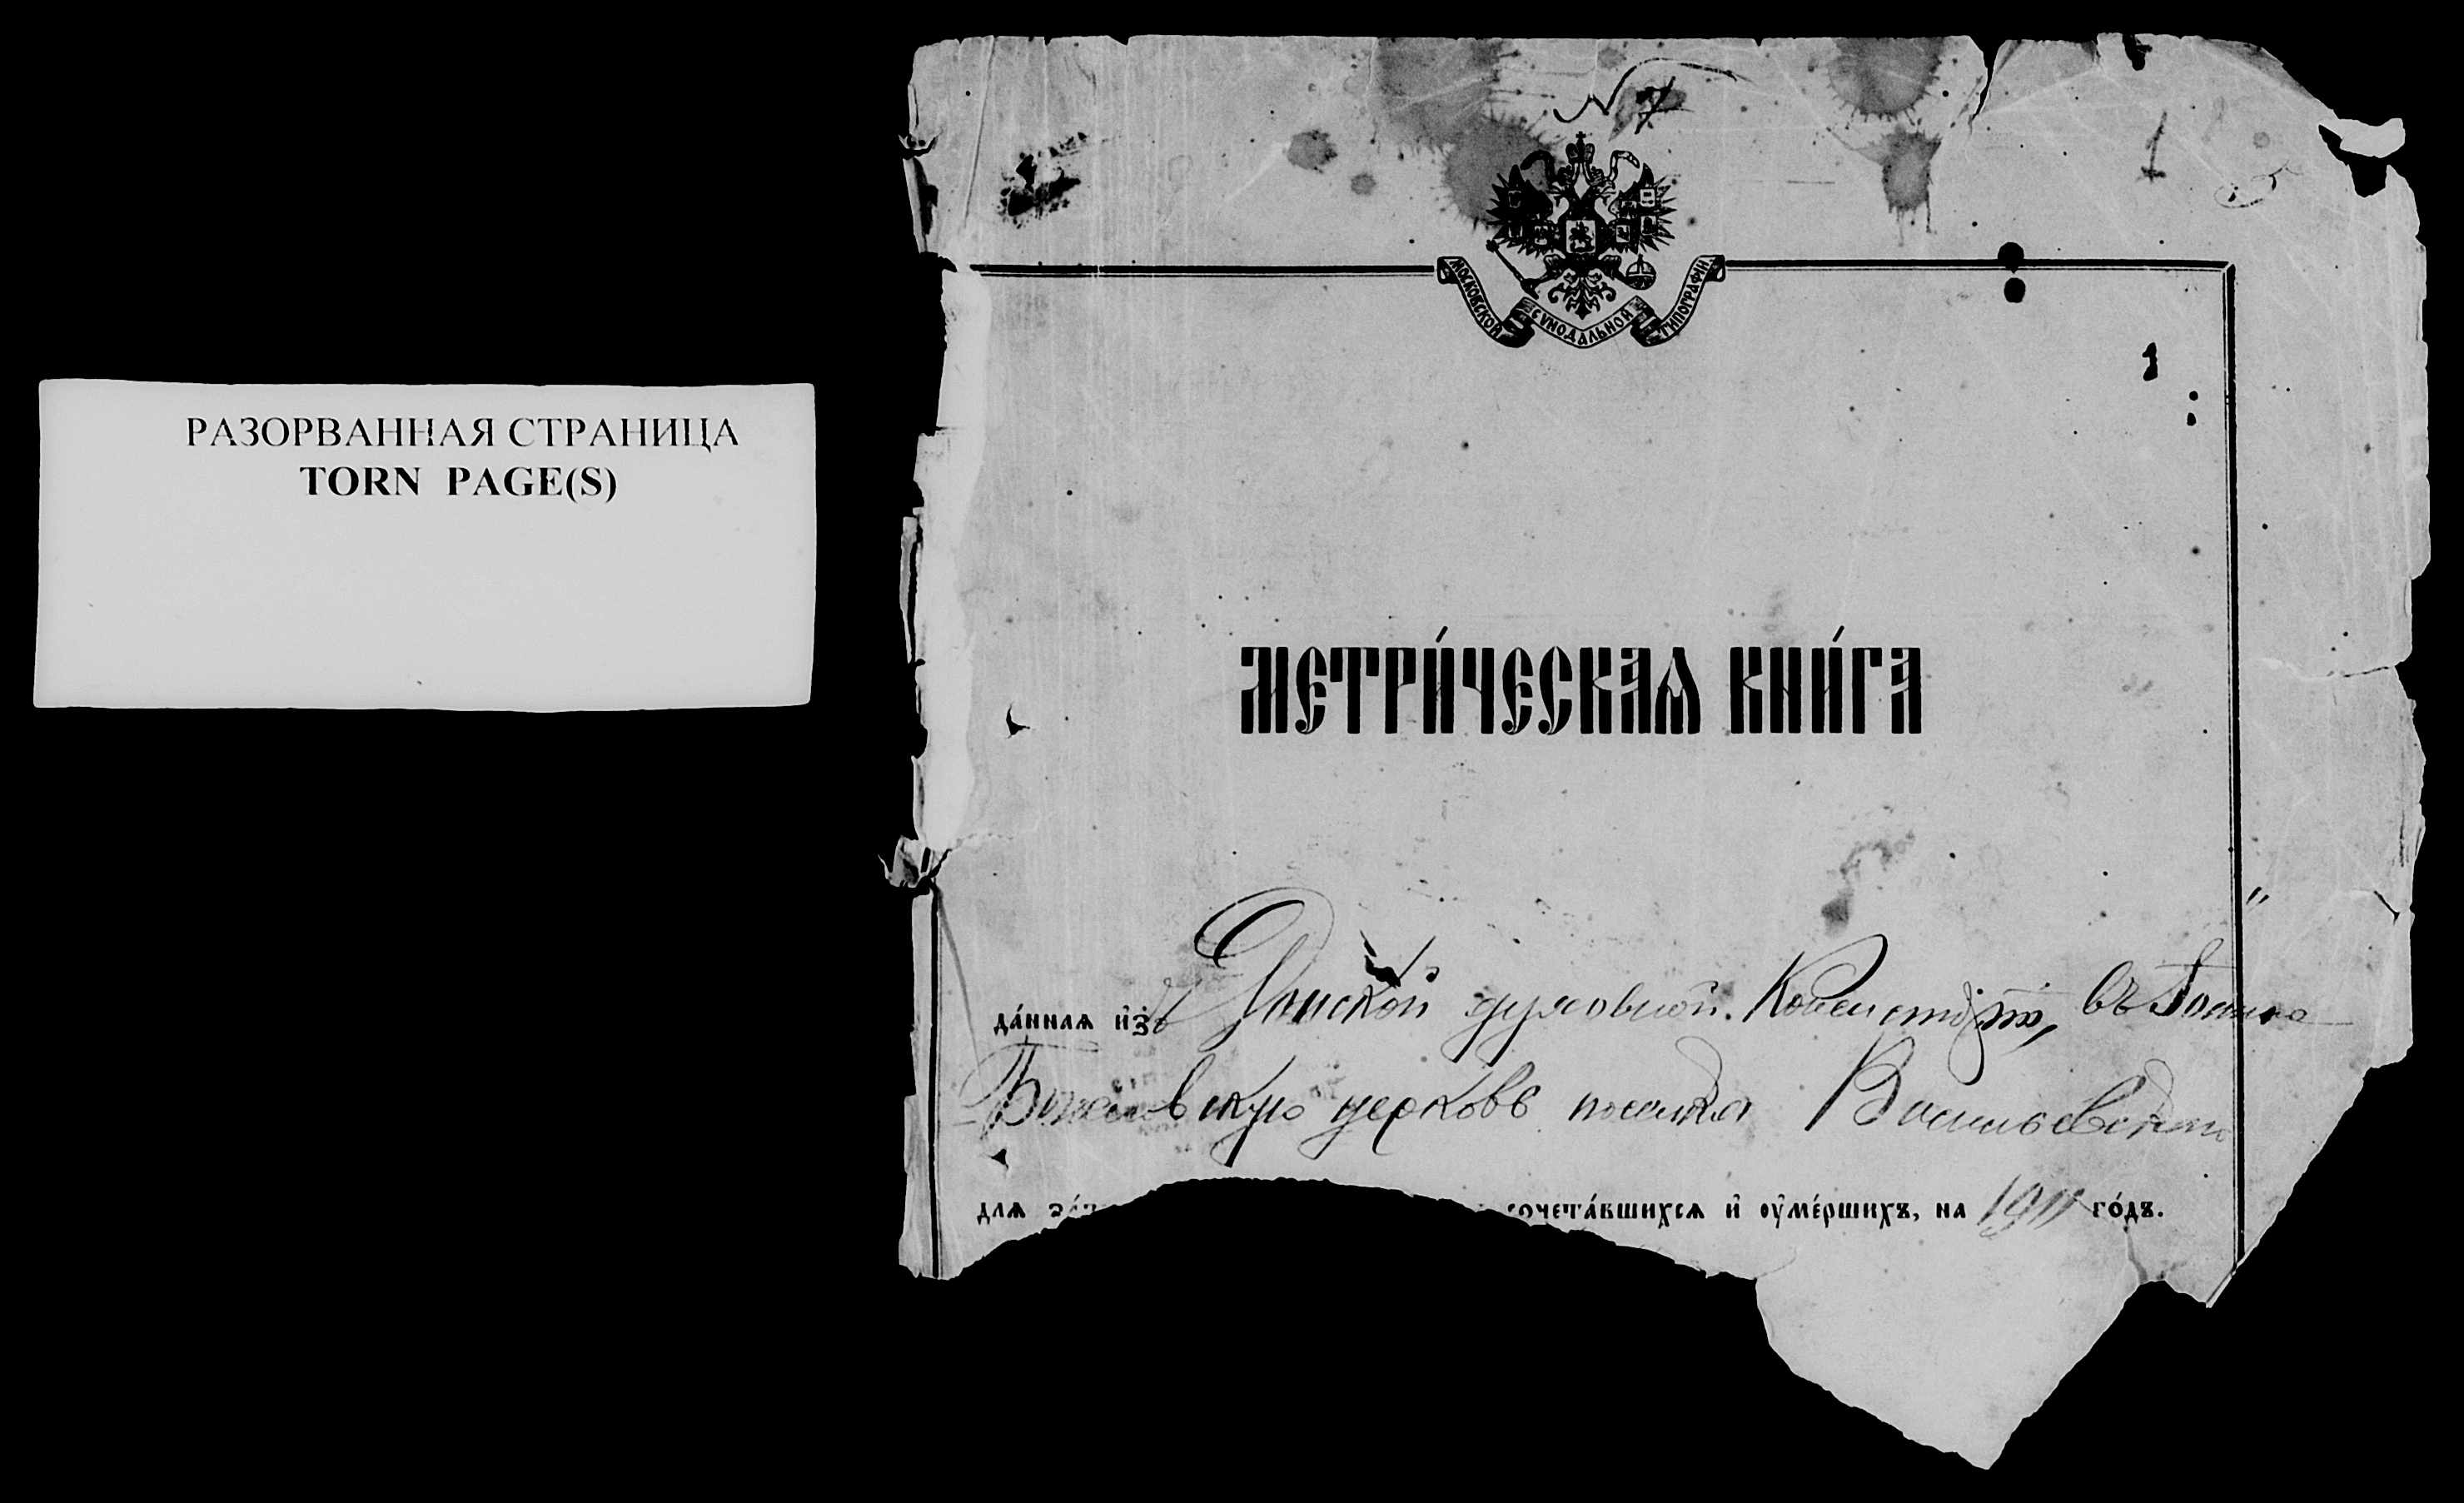 РАЗОРВАННАЯ СТРАНИЦА
TORN PAGE(S)
N 7
1
МОСКОВСКОЙ СѴНОДАЛЬНОЙ ТИПОГРАФІИ
1
МЕТРИ́ЧЕСКАѦ КНИ́ГА
да́ннаѧ и҆зъ Донской духовной Консисторіи, въ
Богословскую церковь поселка Васильевскаго
длѧ сочета́вшихсѧ и҆ ѹ҆ме́ршихъ, на 1911 го́дъ.